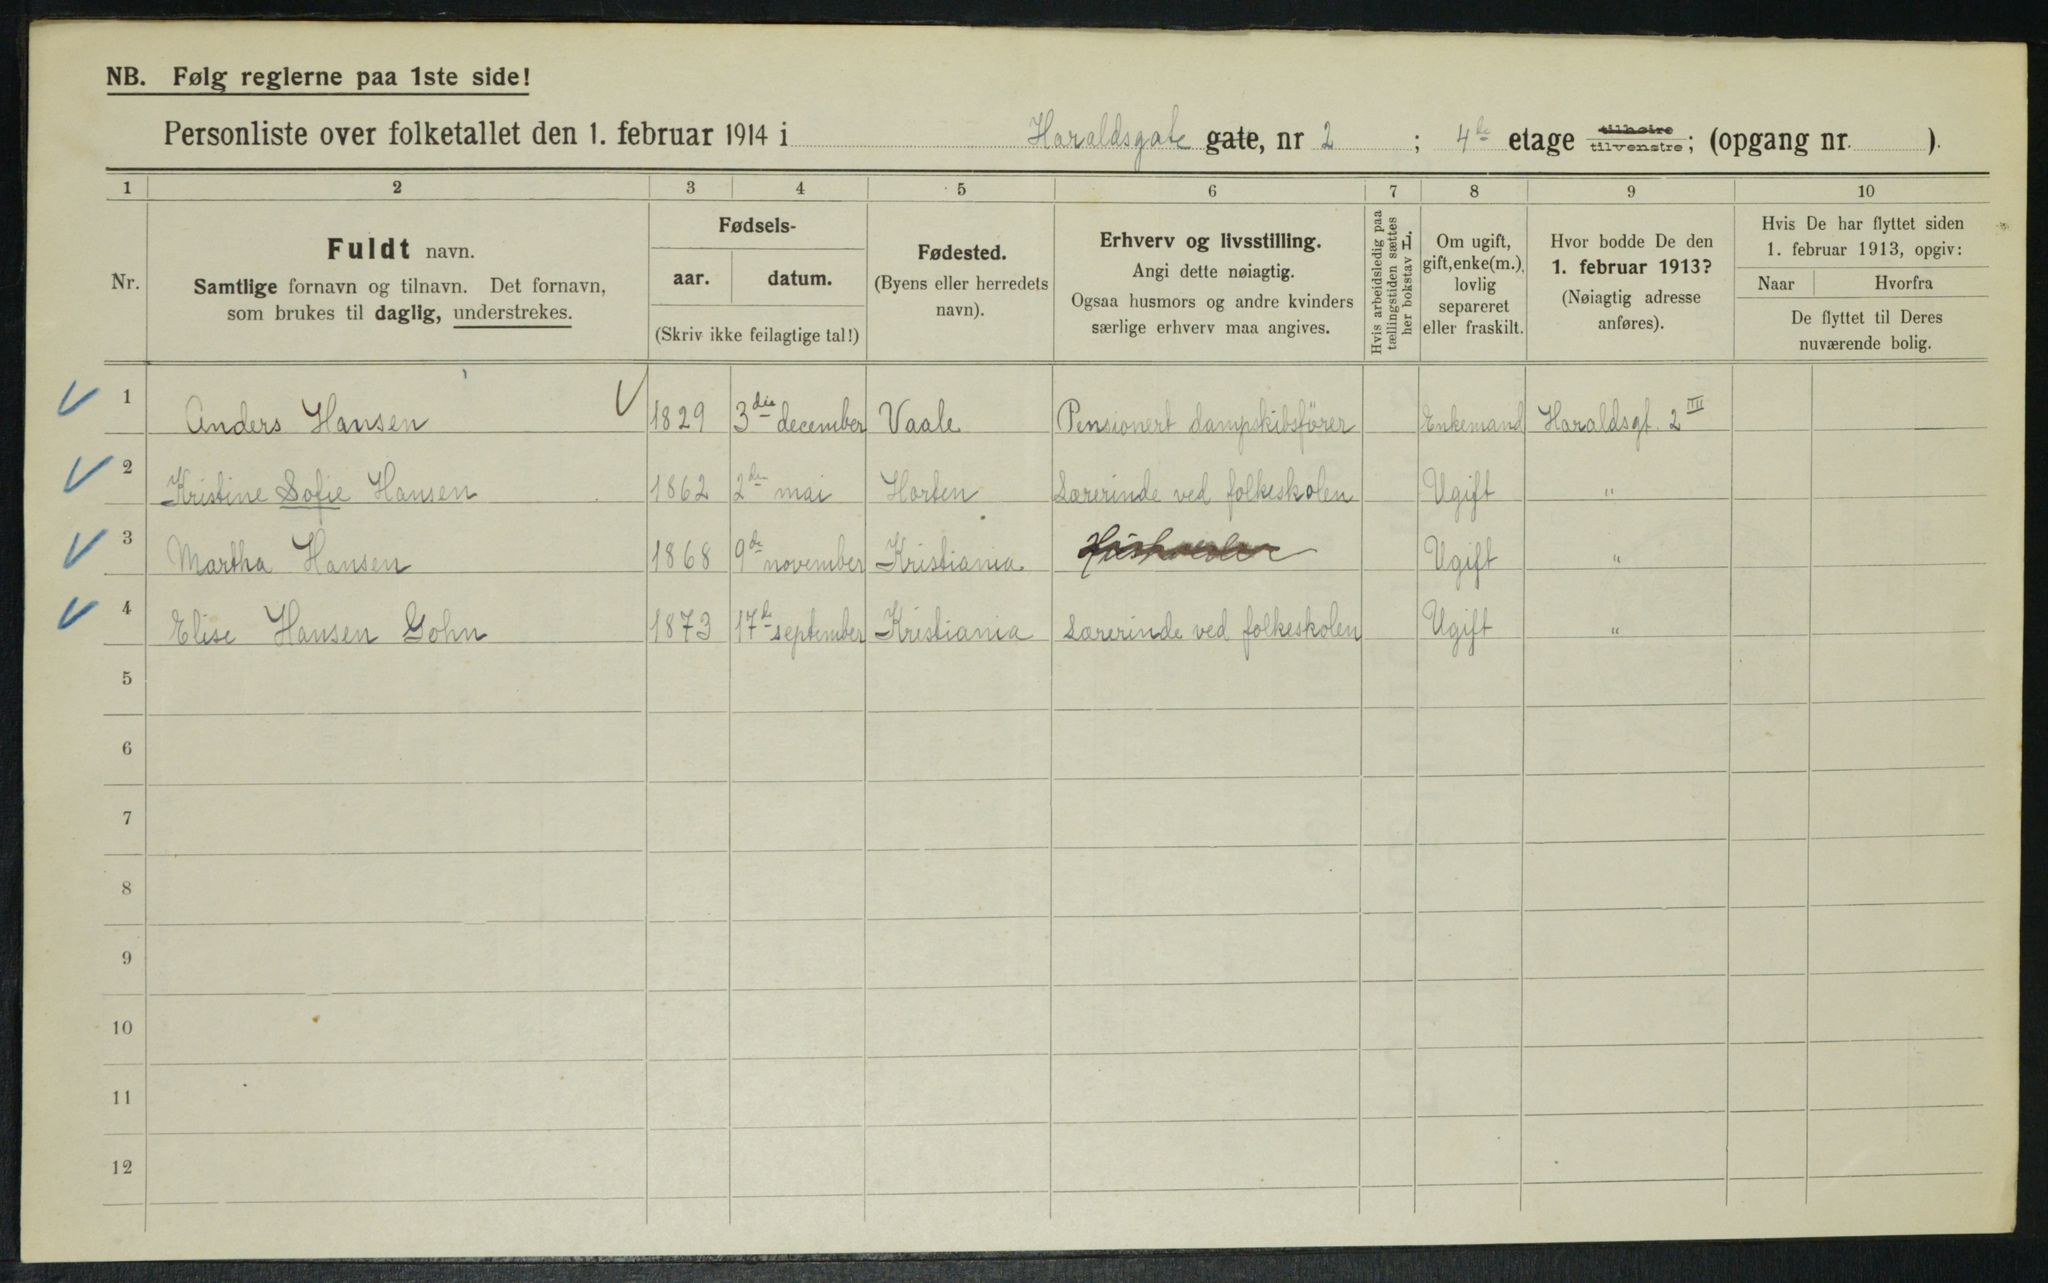 NB. Følg reglerne paa 1ste side!
Personliste over folketallet den 1. februar 1914 i Haraldsgate gate, nr 2 ; 4de etage tilhøire tilvenstre; (opgang nr. ).
1 2 3 4 5 6 7 8 9 10
Nr.
Fuldt navn.
Samtlige fornavn og tilnavn. Det fornavn,
som brukes til daglig, understrekes.
Fødsels-
aar. datum.
(Skriv ikke feilagtige tal!)
Fødested.
(Byens eller herredets
navn).
Erhverv og livsstilling.
Angi dette nøiagtig.
Ogsaa husmors og andre kvinders
særlige erhverv maa angives.
Hvis arbeidsledig paa
tællingstiden sættes
her bokstav L.
Om ugift,
gift, enke(m.),
lovlig
separeret
eller fraskilt.
Hvor bodde De den
1. februar 1913?
(Nøiagtig adresse
anføres).
Hvis De har flyttet siden
1. februar 1913, opgiv:
Naar Hvorfra
De flyttet til Deres
nuværende bolig.
1 Anders Hansen 1829 3die december Vaale Pensionert dampskibsfører Enkemand Haraldsgt. 2 III
2 Kristine Sofie Hansen 1862 2de mai Horten Lærerinde ved folkeskolen Ugift "
3 Martha Hansen 1868 9de november Kristiania Ugift "
4 Elise Hansen Gohn 1873 17de september Kristiania Lærerinde ved folkeskolen Ugift "
5
6
7
8
9
10
11
12